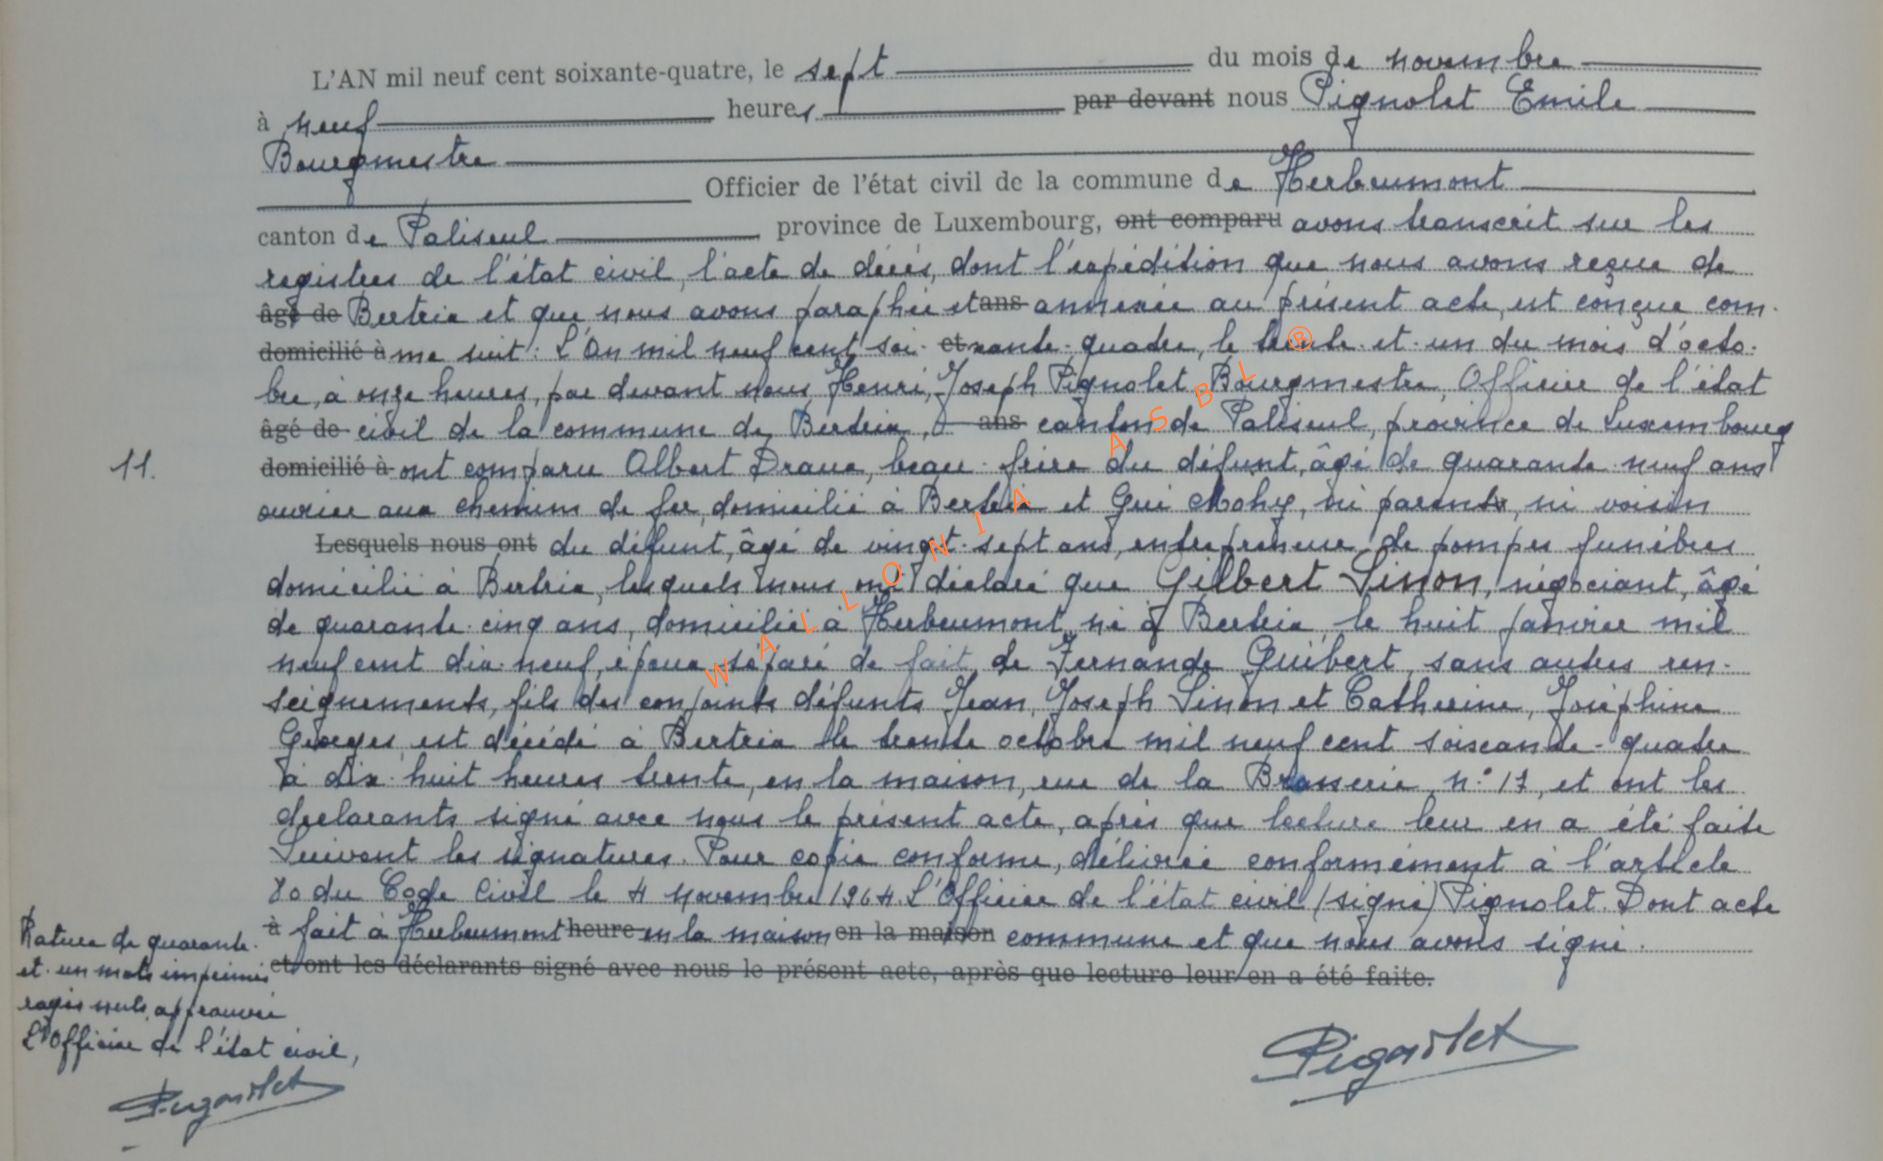 L'AN mil neuf cent soixante-quatre, le sept du mois de novembre
à neuf heures par devant nous Pignolet Emile
Bourgmestre
Officier de l'état civil de la commune de Herbeumont
canton de Paliseul province de Luxembourg, ont comparu avons transcrit sur les
registres de l'état civil, l'acte de décès, dont l'expédition que nous avons reçue de
âgé de Bertrix et que nous avons paraphée et ans annexée au présent acte, est conçue com-
domicilié à me suit : L'An mil neuf cent soi- et xante-quatre, le trente-et-un du mois d'octo-
bre, à onze heures, par devant nous, Henri, Joseph Pignolet, Bourgmestre, Officier de l'état
âgé de civil de la commune de Bertrix, ans canton de Paliseul, province de Luxembourg
11. domicilié à ont comparu Albert Draux, beau-frère du défunt, âgé de quarante-neuf ans
ouvrier aux chemins de fer, domicilié à Bertrix et Gui Mohy, ni parent, ni voisin
Lesquels nous ont du défunt, âgé de vingt-sept ans, entrepreneur de pompes funèbres
domicilié à Bertrix, lesquels nous ont déclaré que Gilbert Sinon, négociant, âgé
de quarante-cinq ans, domicilié à Herbeumont, né à Bertrix, le huit janvier mil
neuf cent dix-neuf, époux séparé de fait de Fernande Guibert, sans autres ren-
seignements, fils des conjoints défunts Jean, Joseph Sinon et Catherine, Joséphine
Georges, est décédé à Bertrix le trente octobre mil neuf cent soixante-quatre
à dix-huit heures trente, en la maison, rue de la Brasserie, n° 17, et ont les
déclarants signé avec nous le présent acte, après que lecture leur en a été faite
Suivent les signatures. Pour copie conforme, délivrée conformément à l'article
80 du Code Civil le 4 novembre 1964. L'Officier de l'état civil (signé) Pignolet. Dont acte
à fait à Herbeumont heure en la maison en la maison commune et que nous avons signé.
et ont les déclarants signé avec nous le présent acte, après que lecture leur en a été faite.
Rature de quarante-
et-un mots imprimés
rayés nuls, approuvée
L'Officier de l'état civil,
Pignolet
Pignolet
WALLONIA ASBL ®